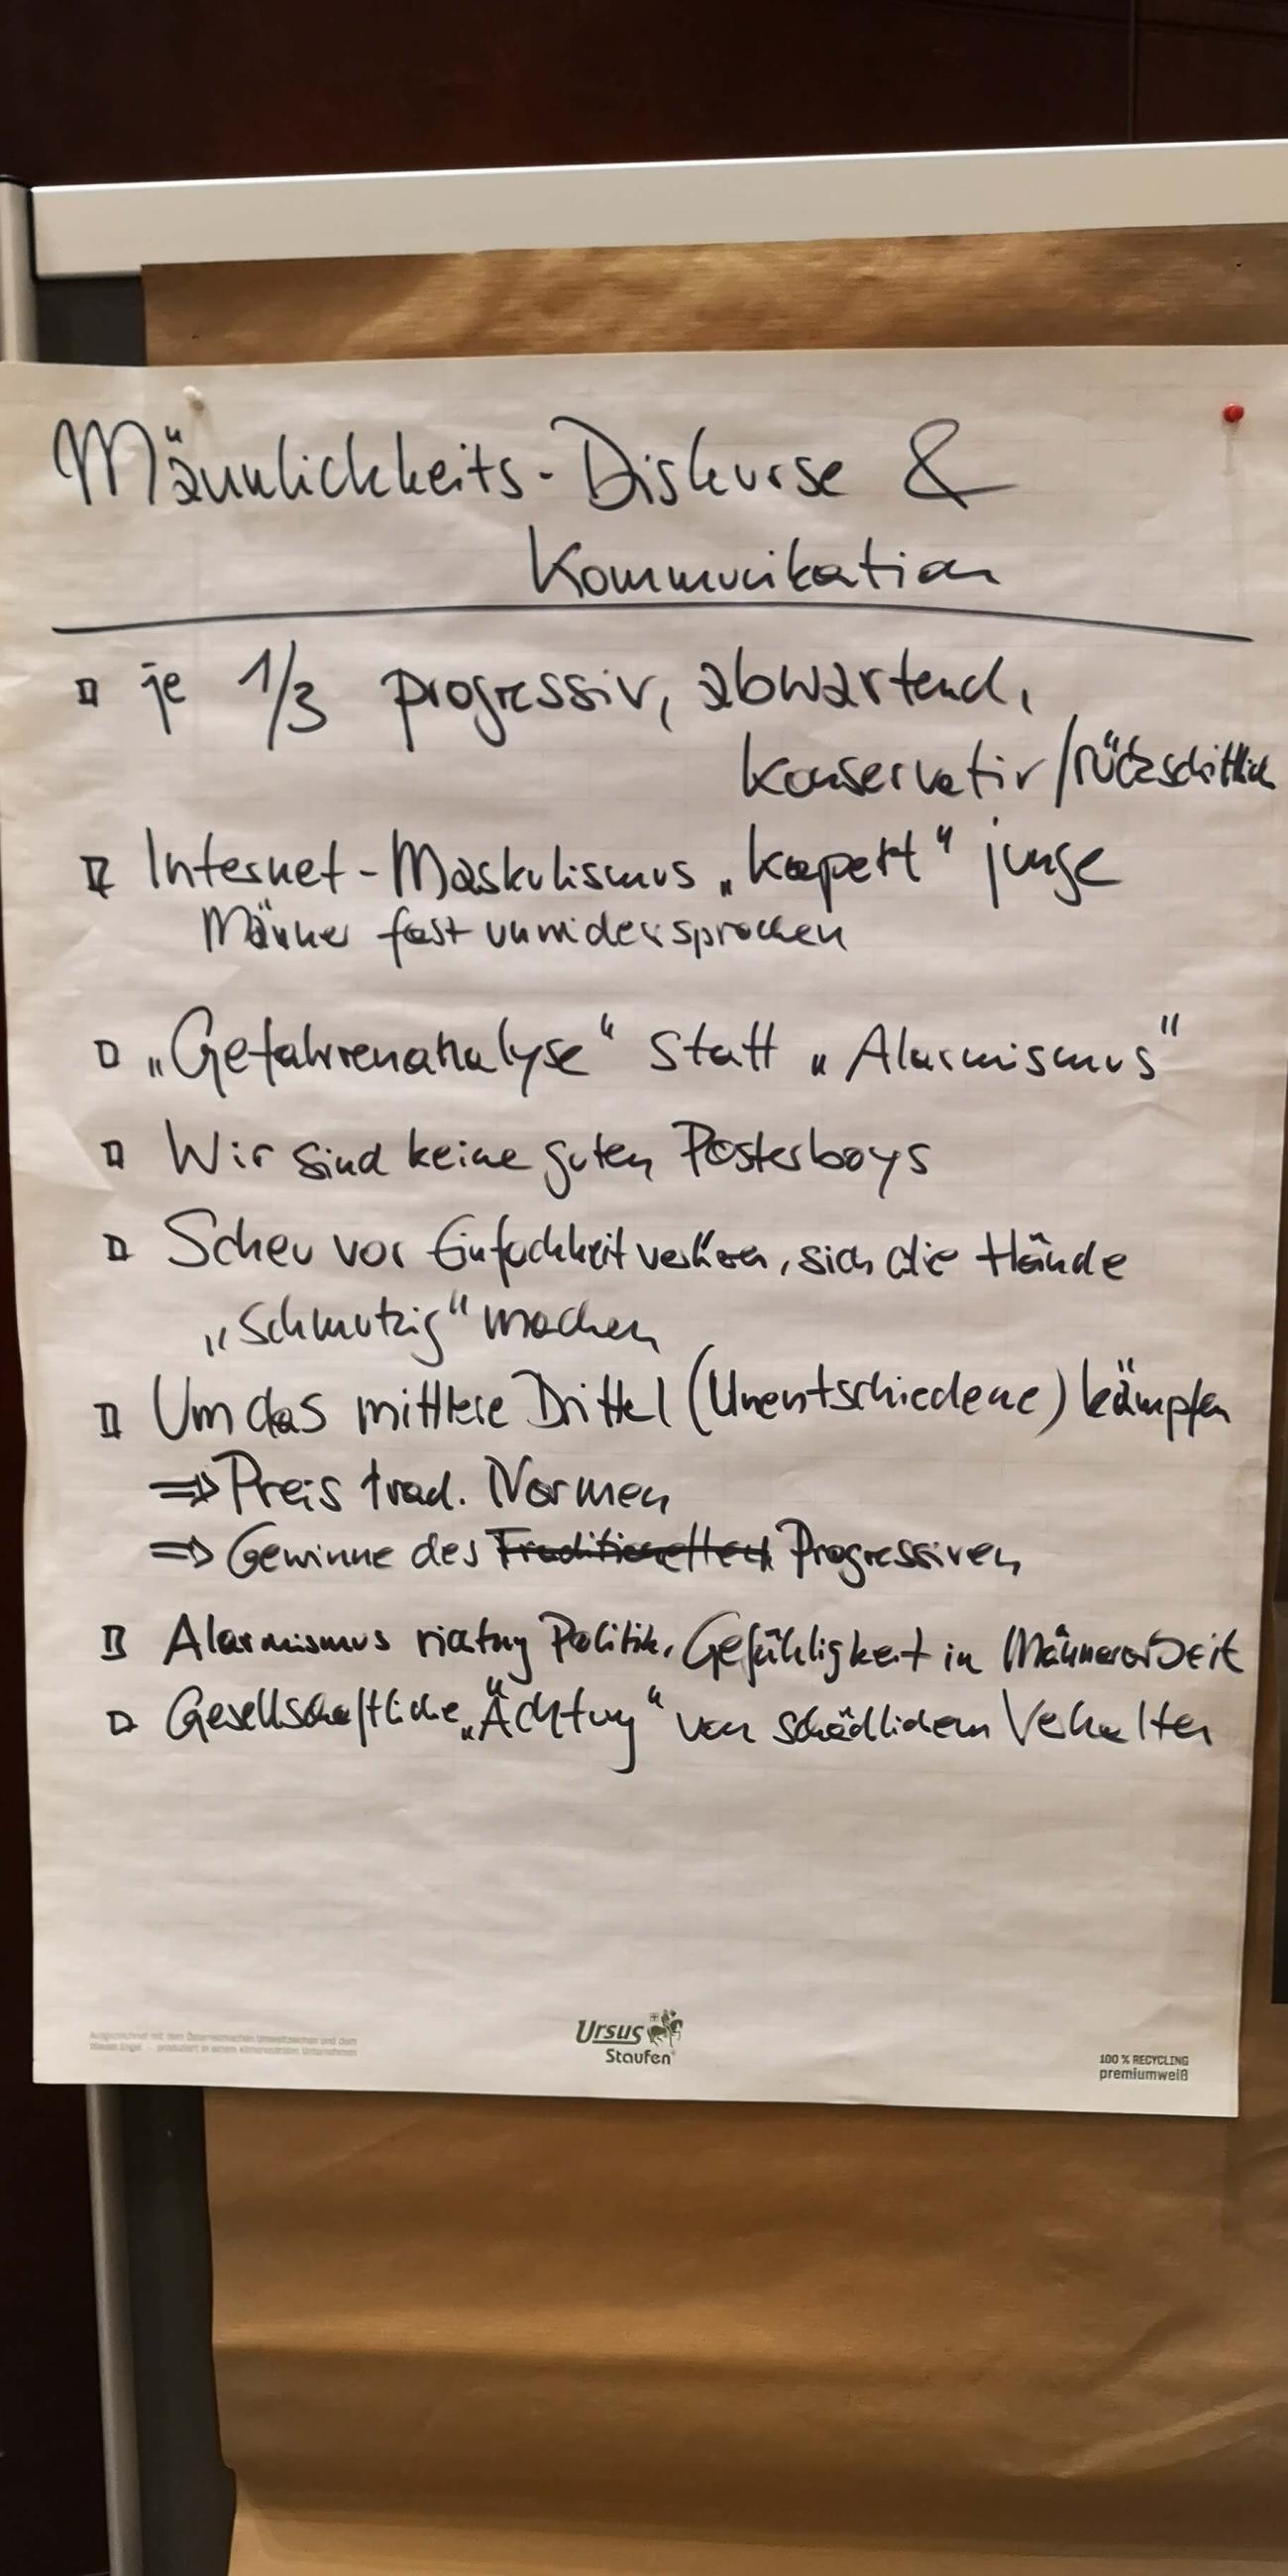 Männlichkeits-Diskurse &
Kommunikation
je 1/3 progressiv, abwartend,
konservativ/rückschrittlich
Internet-Maskulismus „kapert“ junge
Männer fast unwidersprochen
„Gefahrenanalyse“ statt „Alarmismus“
Wir sind keine guten Posterboys
Scheu vor Einfachheit verlieren, sich die Hände
„schmutzig“ machen
Um das mittlere Drittel (Unentschiedene) kämpfen
⇒ Preis trad. Normen
⇒ Gewinne des Traditionellen Progressiven
Alarmismus richtung Politik, Gefühligkeit in Männerarbeit
Gesellschaftliche „Ächtung“ von schädlichem Verhalten
Ursus
Staufen
Ausgezeichnet mit dem Österreichischen Umweltzeichen und dem
Blauen Engel - produziert in einem klimaneutralen Unternehmen
100 % RECYCLING
premiumweiß